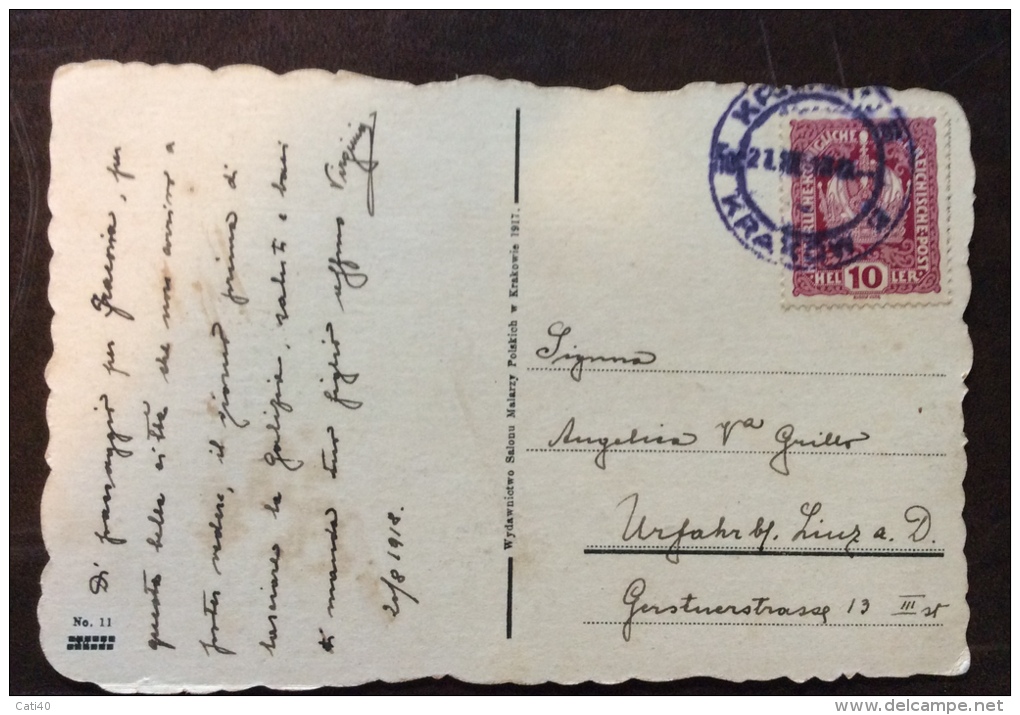 Di passaggio per Gracovia, per
questa bella città che mi arrivo a
poter vedere, il giorno prima di
lasciare la Galizia, saluti e baci
ti manda tuo figlio aff.mo Virginio
20/8 1918.
No. 11
Wydawnictwo Salonu Malarzy Polskich w Krakowie 1917.
KRAKÓW
21.VIII
KAISERLICHE KÖNIGLICHE ÖSTERREICHISCHE POST
HELLER
10
Signora
Angelica Va Grillo
Urfahr b/. Linz a. D.
Gerstnerstrasse 13 III st
Cati40